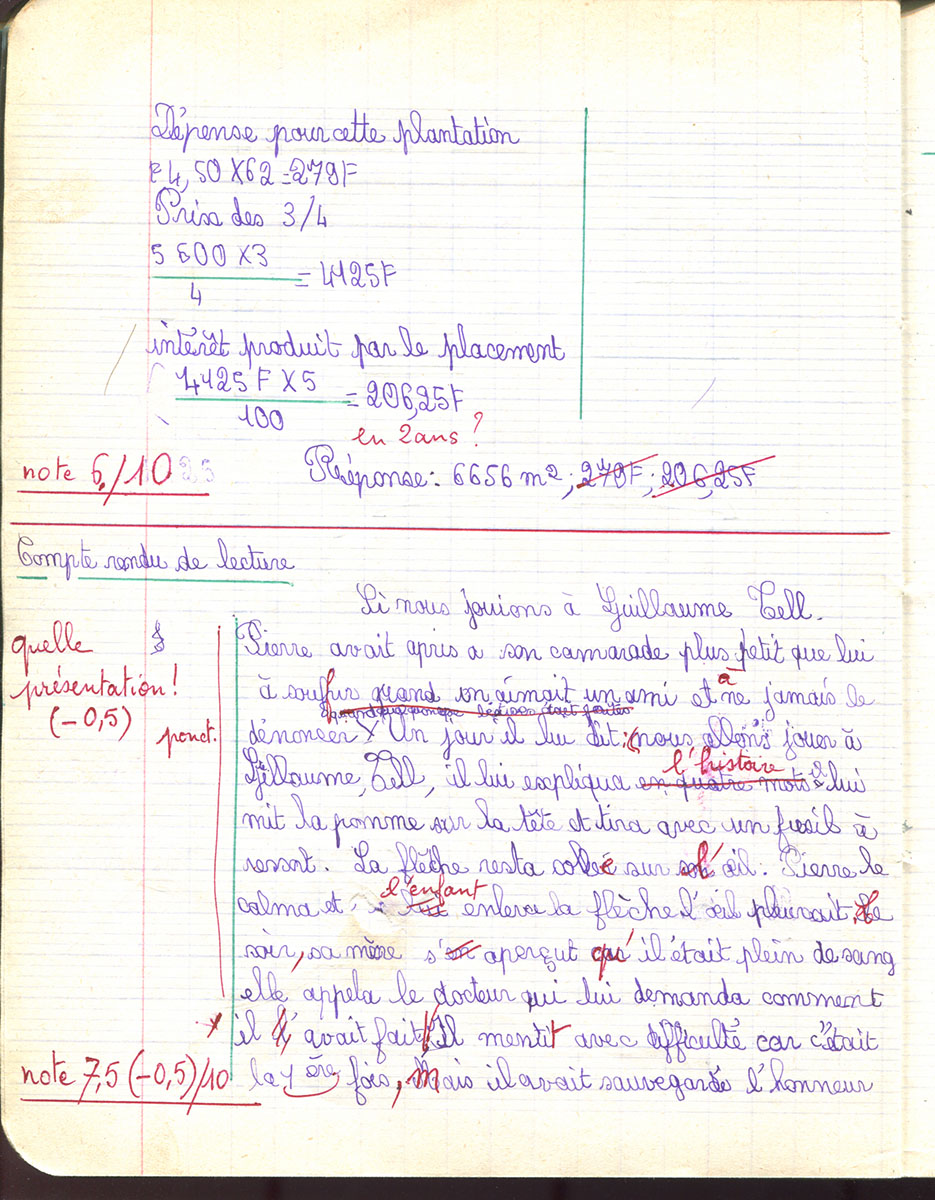 Dépense pour cette plantation
4,50 X 62 = 279F
Prix des 3/4
5 500 X 3
= 4125F
4
intérêt produit par le placement
4125 F X 5
= 206,25F
100
en 2 ans ?
note 6/10
Réponse : 6656 m2 ; 279F ; 206,25F
Compte rendu de lecture
Si nous jouions à Guillaume Tell.
quelle présentation !
(-0,5)
ponct.
Pierre avait apris a son camarade plus petit que lui
à souffrir quand on aimait un ami et à ne jamais le
dénoncer. Un jour il lui dit : nous allons jouer à
l'histoire
Gillaume Tell, il lui expliqua en quatre mots il lui
mit la pomme sur la tête et tira avec un fusil à
ressort. La flèche resta collée sur l'œil. Pierre le
l'enfant
calma et enleva la flèche l'œil pleurait, Le
soir, sa mère s'en aperçut qu'il était plein de sang
elle appela le docteur qui lui demanda comment
il l'avait fait. Il mentit avec difficulté car c'était
la 1ère fois, mais il avait sauvegardé l'honneur
note 7,5 (-0,5)/10